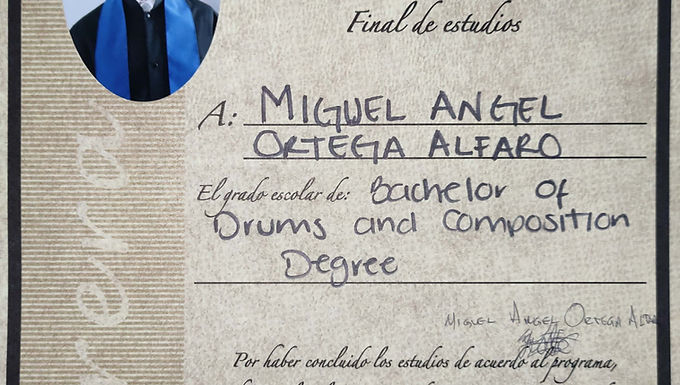 Final de estudios
A: MIGUEL ANGEL
ORTEGA ALFARO
El grado escolar de: Bachelor of
Drums and Composition
Degree
MIGUEL ANGEL ORTEGA ALFA
Por haber concluido los estudios de acuerdo al programa,